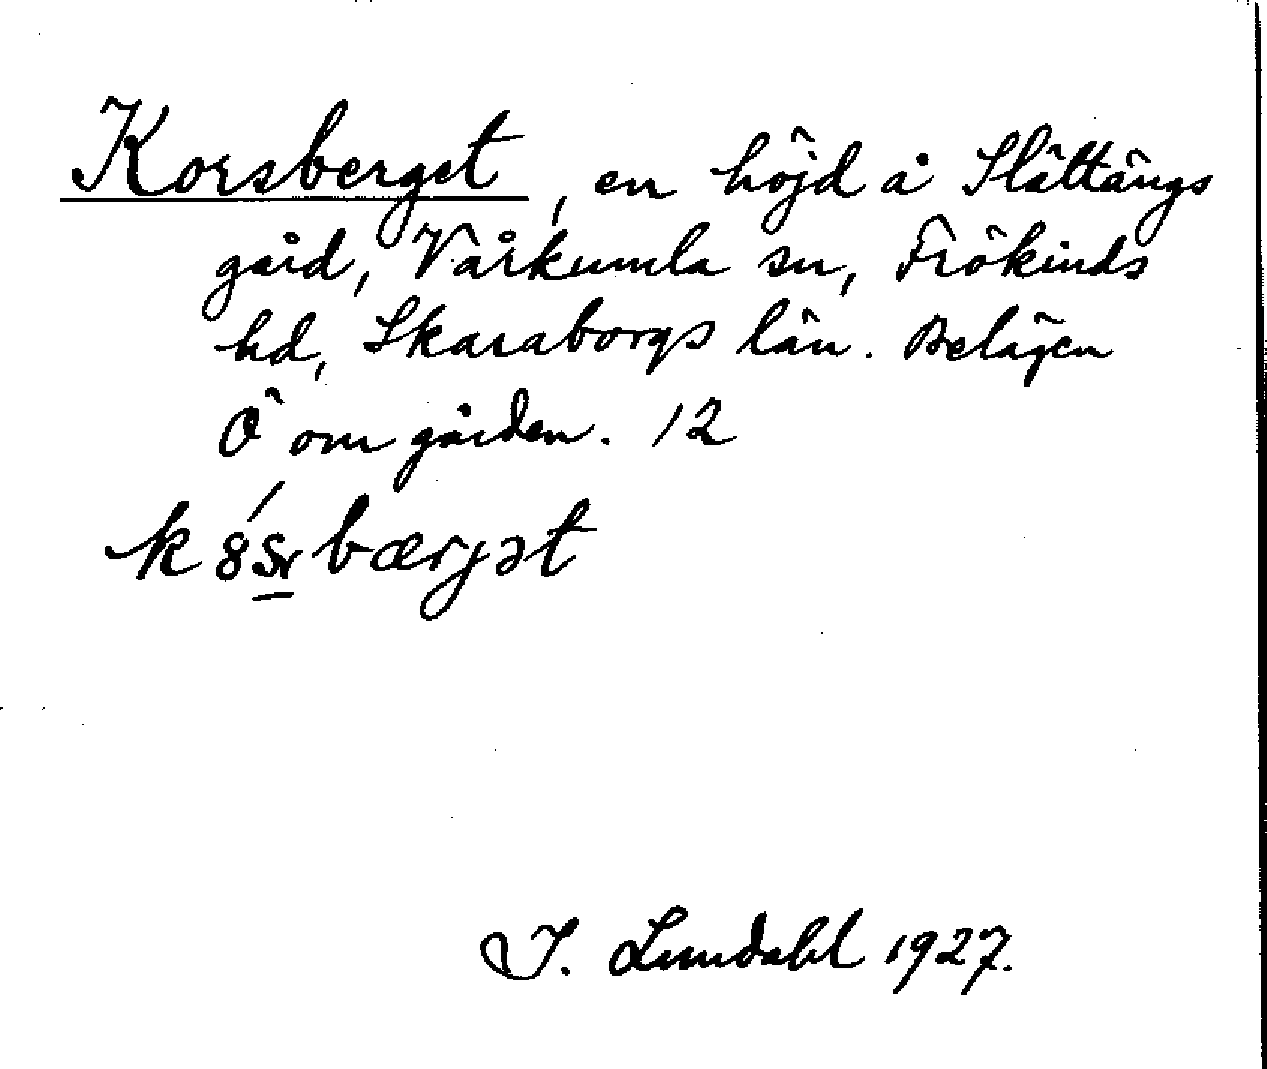 Korsberget, en höjd å Slättängs
gård, Vårkumla sn, Frökinds
hd, Skaraborgs län. Belägen
Ö om gården. 12
J. Lundahl 1927.